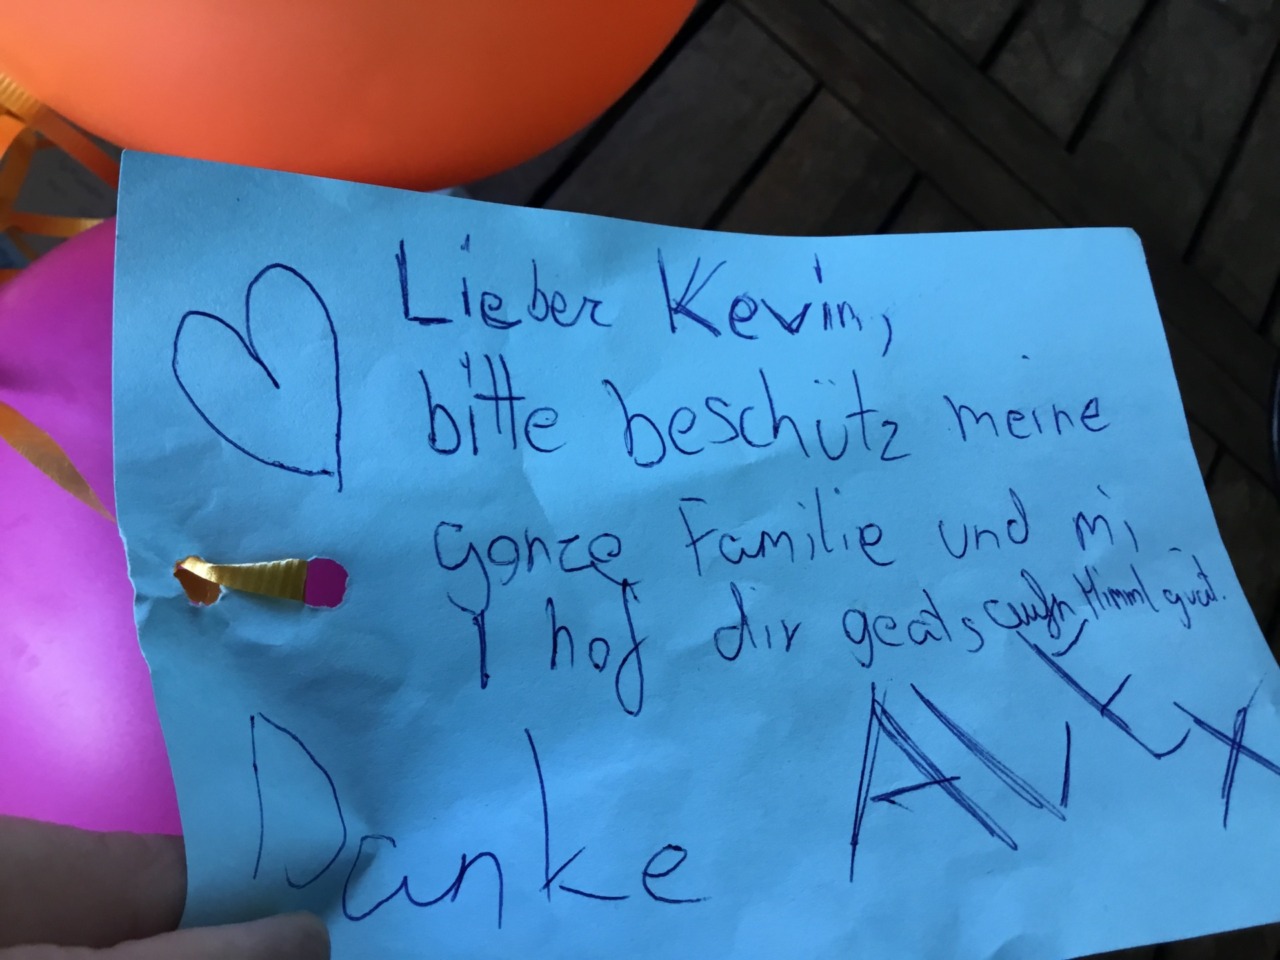 Lieber Kevin,
bitte beschütz meine
ganze Familie und mi
I hof dir geats aufn Himml guat.
Danke